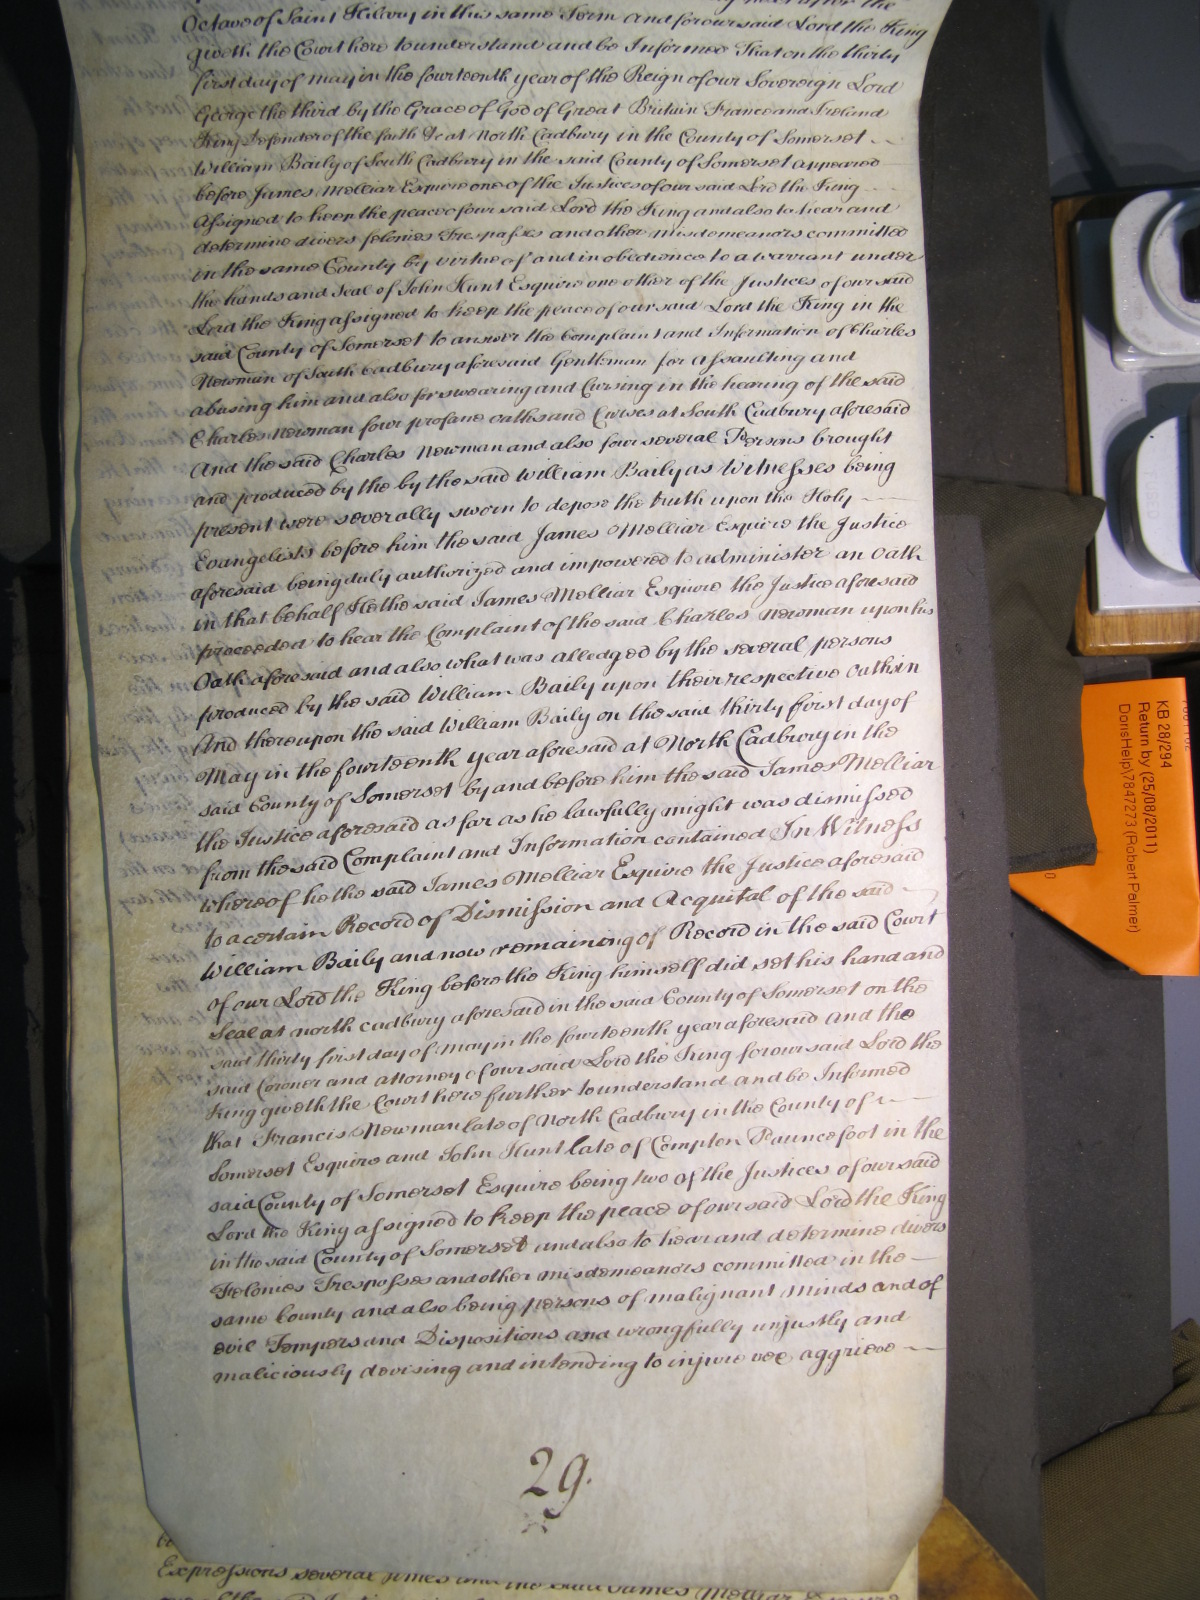 Octave of Saint Hilary in this same Term and for our said Lord the King
giveth the Court here to understand and be Informed That on the thirty
first day of may in the fourteenth year of the Reign of our Sovereign Lord
George the third by the Grace of God of Great Britain France and Ireland
King Defender of the faith &c at North Cadbury in the County of Somerset
William Baily of South Cadbury in the said County of Somerset appeared
before James Melliar Esquire one of the Justices of our said Lord the King
Assigned to keep the peace of our said Lord the King and also to hear and
determine divers felonies Trespasses and other misdemeanors committed
in the same County by virtue of and in obedience to a warrant under
the hands and Seal of John Hunt Esquire one other of the Justices of our said
Lord the King assigned to keep the peace of our said Lord the King in the
said County of Somerset to answer the Complaint and Information of Charles
Newman of South Cadbury aforesaid Gentleman for assaulting and
abusing him and also for swearing and Cursing in the hearing of the said
Charles Newman four profane oaths and Curses at South Cadbury aforesaid
And the said Charles Newman and also four several Persons brought
and produced by the by the said William Baily as Witnesses being
present were severally sworn to depose the truth upon the Holy
Evangelists before him the said James Melliar Esquire the Justice
aforesaid being duly authorized and impowered to administer an Oath
in that behalf He the said James Melliar Esquire the Justice aforesaid
proceeded to hear the Complaint of the said Charles Newman upon his
Oath aforesaid and also what was alledged by the several persons
produced by the said William Baily upon their respective Oaths in
And thereupon the said William Baily on the said thirty first day of
May in the fourteenth year aforesaid at North Cadbury in the
said County of Somerset by and before him the said James Melliar
the Justice aforesaid as far as he lawfully might was dismissed
from the said Complaint and Information contained In Witness
whereof he the said James Melliar Esquire the Justice aforesaid
to a certain Record of Dismission and Acquital of the said
William Baily and now remaining of Record in the said Court
of our Lord the King before the King himself did set his hand and
Seal at north cadbury aforesaid in the said County of Somerset on the
said thirty first day of may in the fourteenth year aforesaid and the
said Coroner and attorney of our said Lord the King for our said Lord the
King giveth the Court here further to understand and be Informed
that Francis Newman late of North Cadbury in the County of
Somerset Esquire and John Hunt late of Compton Pauncefoot in the
said County of Somerset Esquire being two of the Justices of our said
Lord the King assigned to keep the peace of our said Lord the King
in the said County of Somerset and also to hear and determine divers
Felonies Trespasses and other misdemeanors committed in the
same County and also being persons of malignant minds and of
evil Tempers and Dispositions and wrongfully unjustly and
maliciously devising and intending to injure vex aggrieve
29.
Expressions several times and the said James Melliar
KB 28/294
Return by (25/08/2011)
DorisHelp\7847273 (Robert Palmer)